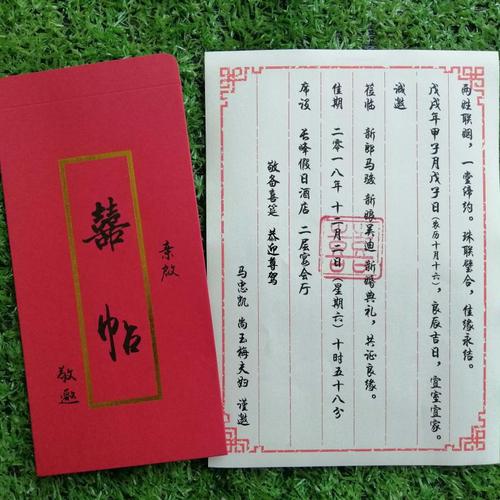 两姓联姻，一堂缔约。珠联璧合，佳缘永结。
戊戌年甲子月戊子日（农历十月十六），良辰吉日，宜室宜家。
诚邀
莅临 新郎马骏 新娘吴迪 新婚典礼，共证良缘。
佳期 二零一八年 十二月二日（星期六）十时五十八分
席设 峰假日酒店 二层宴会厅
敬备喜筵 恭迎尊驾
马忠凯 尚玉梅夫妇 谨邀
亲启
囍帖
敬邀
囍